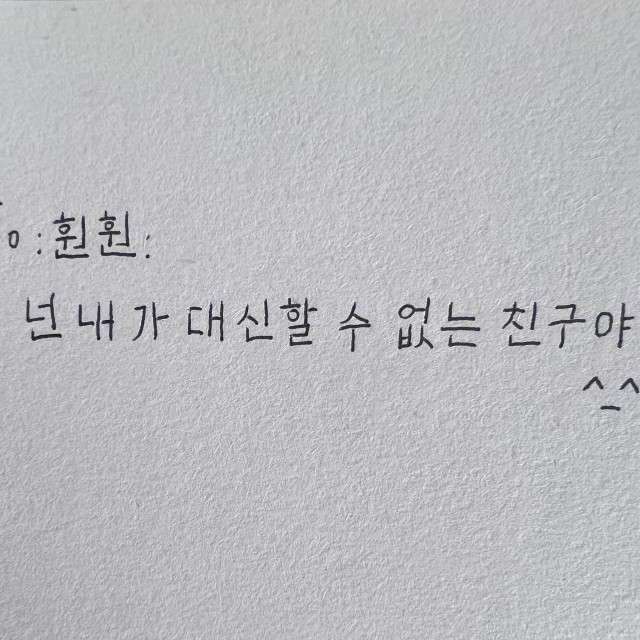 To:훤훤:
넌 내가 대신할 수 없는 친구야
^_^